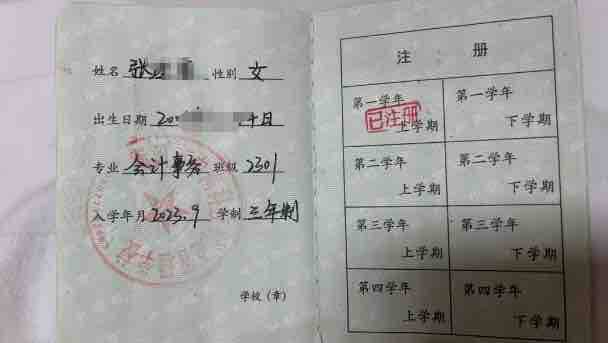 姓名 张 性别 女
出生日期 20 十日
专业 会计事务 班级 2301
入学年月 2023.9 学制 三年制
学校（章）
注 册
第一学年 上学期
已注册
第一学年 下学期
第二学年 上学期
第二学年 下学期
第三学年 上学期
第三学年 下学期
第四学年 上学期
第四学年 下学期